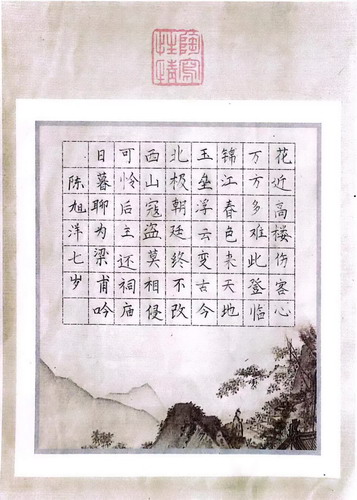 陶写性情
花近高楼伤客心
万方多难此登临
锦江春色来天地
玉垒浮云变古今
北极朝廷终不改
西山寇盗莫相侵
可怜后主还祠庙
日暮聊为梁甫吟
陈旭洋七岁